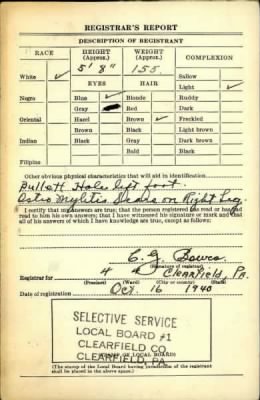 REGISTRAR'S REPORT
DESCRIPTION OF REGISTRANT
RACE HEIGHT (Approx.) WEIGHT (Approx.) COMPLEXION
5' 8" 155
White ✓ Sallow
EYES HAIR Light ✓
Negro Blue ✓ Blonde Ruddy
Gray Red Dark
Oriental Hazel Brown ✓ Freckled
Brown Black Light brown
Indian Black Gray Dark brown
Bald Black
Filipino
Other obvious physical characteristics that will aid in identification
Bullett Hole left foot.
Osteo Mylitis Scars on Right Leg.
I certify that my answers are true; that the person registered has read or has had
read to him his own answers; that I have witnessed his signature or mark and that
all of his answers of which I have knowledge are true, except as follows:
C. G. Bowes
(Signature of registrar)
Registrar for 4 Clearfield, Pa.
(Precinct) (Ward) (City or county) (State)
Date of registration Oct. 16 1940
SELECTIVE SERVICE
LOCAL BOARD #1
CLEARFIELD CO.
(STAMP OF LOCAL BOARD)
CLEARFIELD, PA
(The stamp of the Local Board having jurisdiction of the registrant
shall be placed in the above space.)